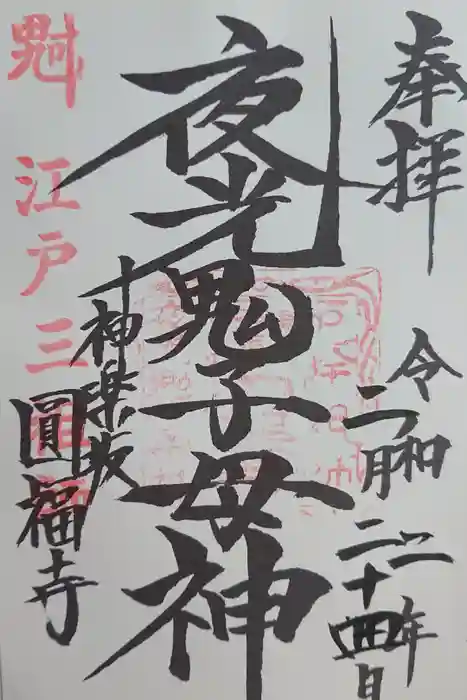 奉拝
令和
二月二十四日
年
夜光鬼子母神
神楽坂
圓福寺
魁
江戸三